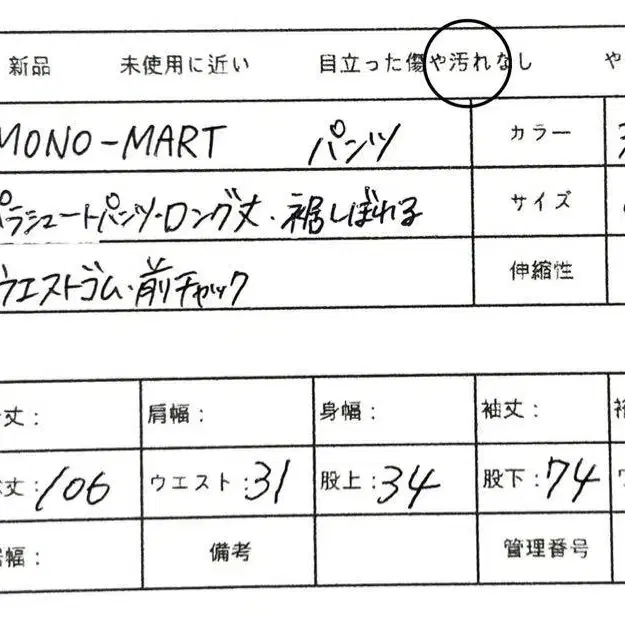 新品 未使用に近い 目立った傷や汚れなし や
MONO-MART パンツ カラー
パラシュートパンツ・ロング丈・裾しぼれる サイズ
ウエストゴム・前チャック 伸縮性
丈: 肩幅: 身幅: 袖丈: 裄
丈:106 ウエスト:31 股上:34 股下:74
幅: 備考 管理番号